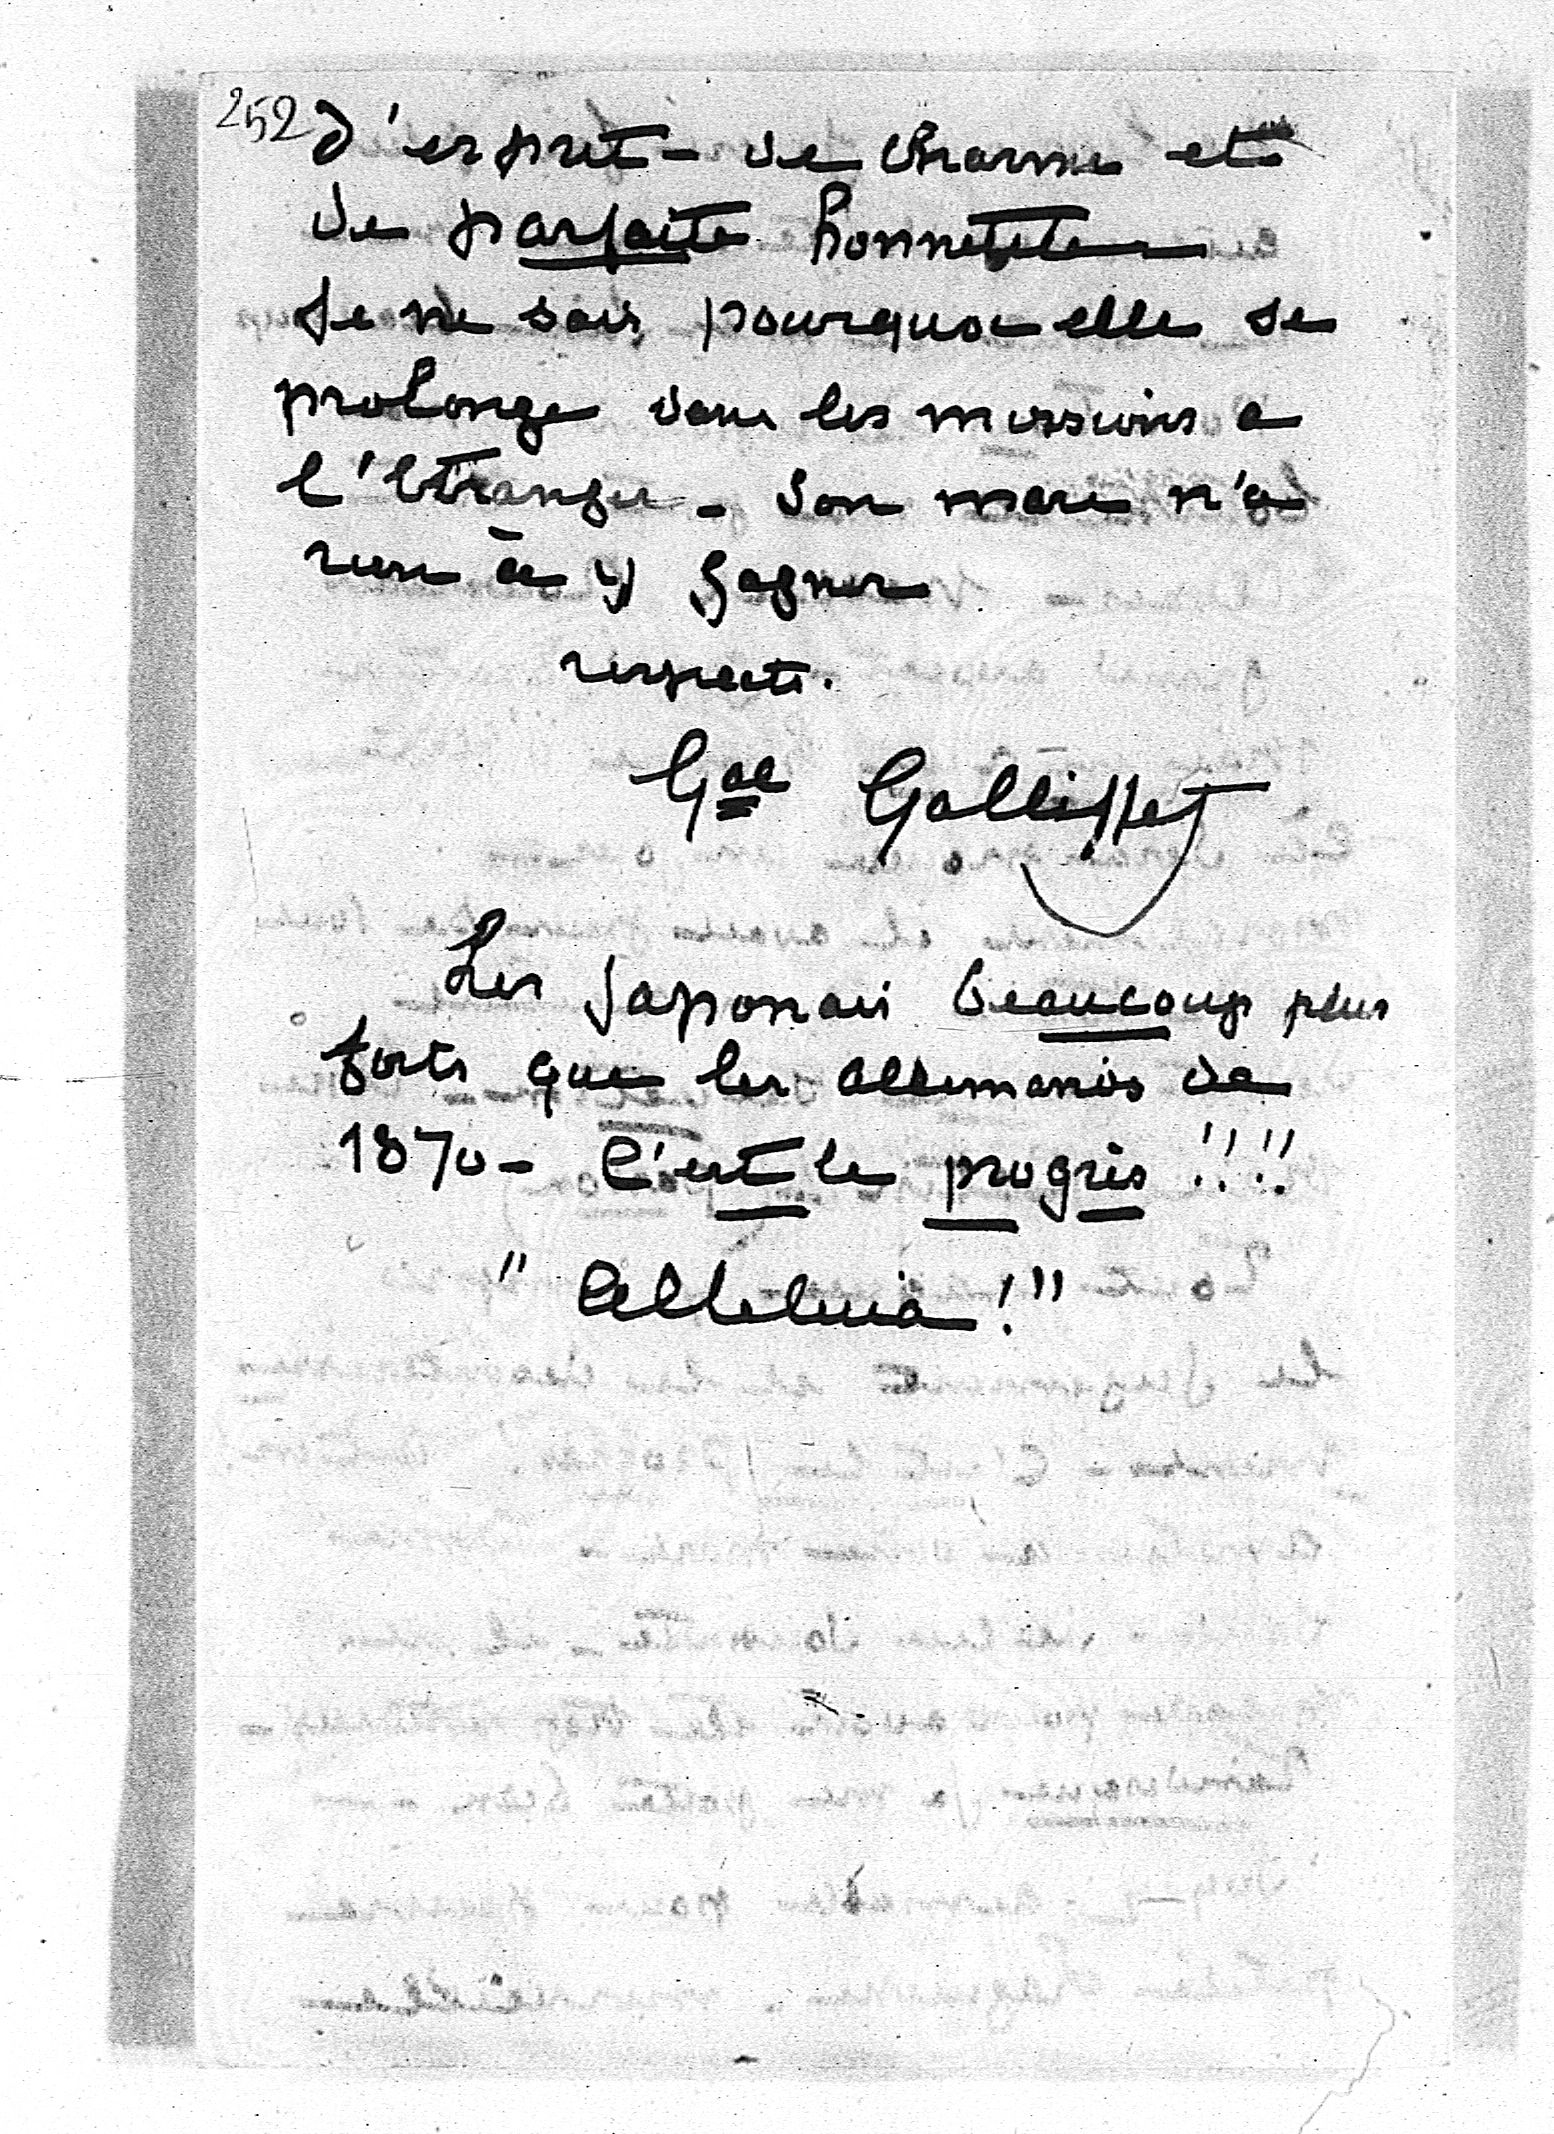 252
d'esprit - de charme et
de parfaite honnêteté
Je ne sais pourquoi elle se
prolonge dans les missions a
l'étranger - Son mari n'a
rien à y gagner
respects.
Gal Galliffet
Les Japonais beaucoup plus
forts que les allemands de
1870 - C'est le progrès !!!!
"Alleluia !"